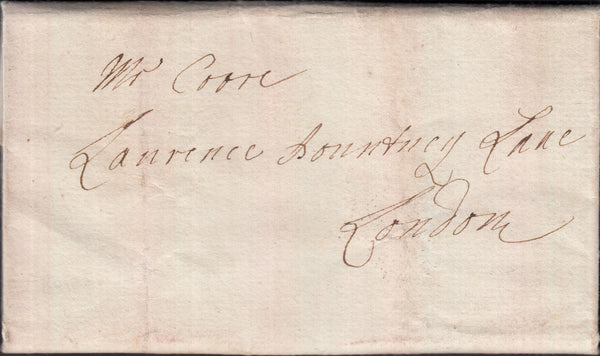 Mr Coore
Laurence Pountney Lane
London